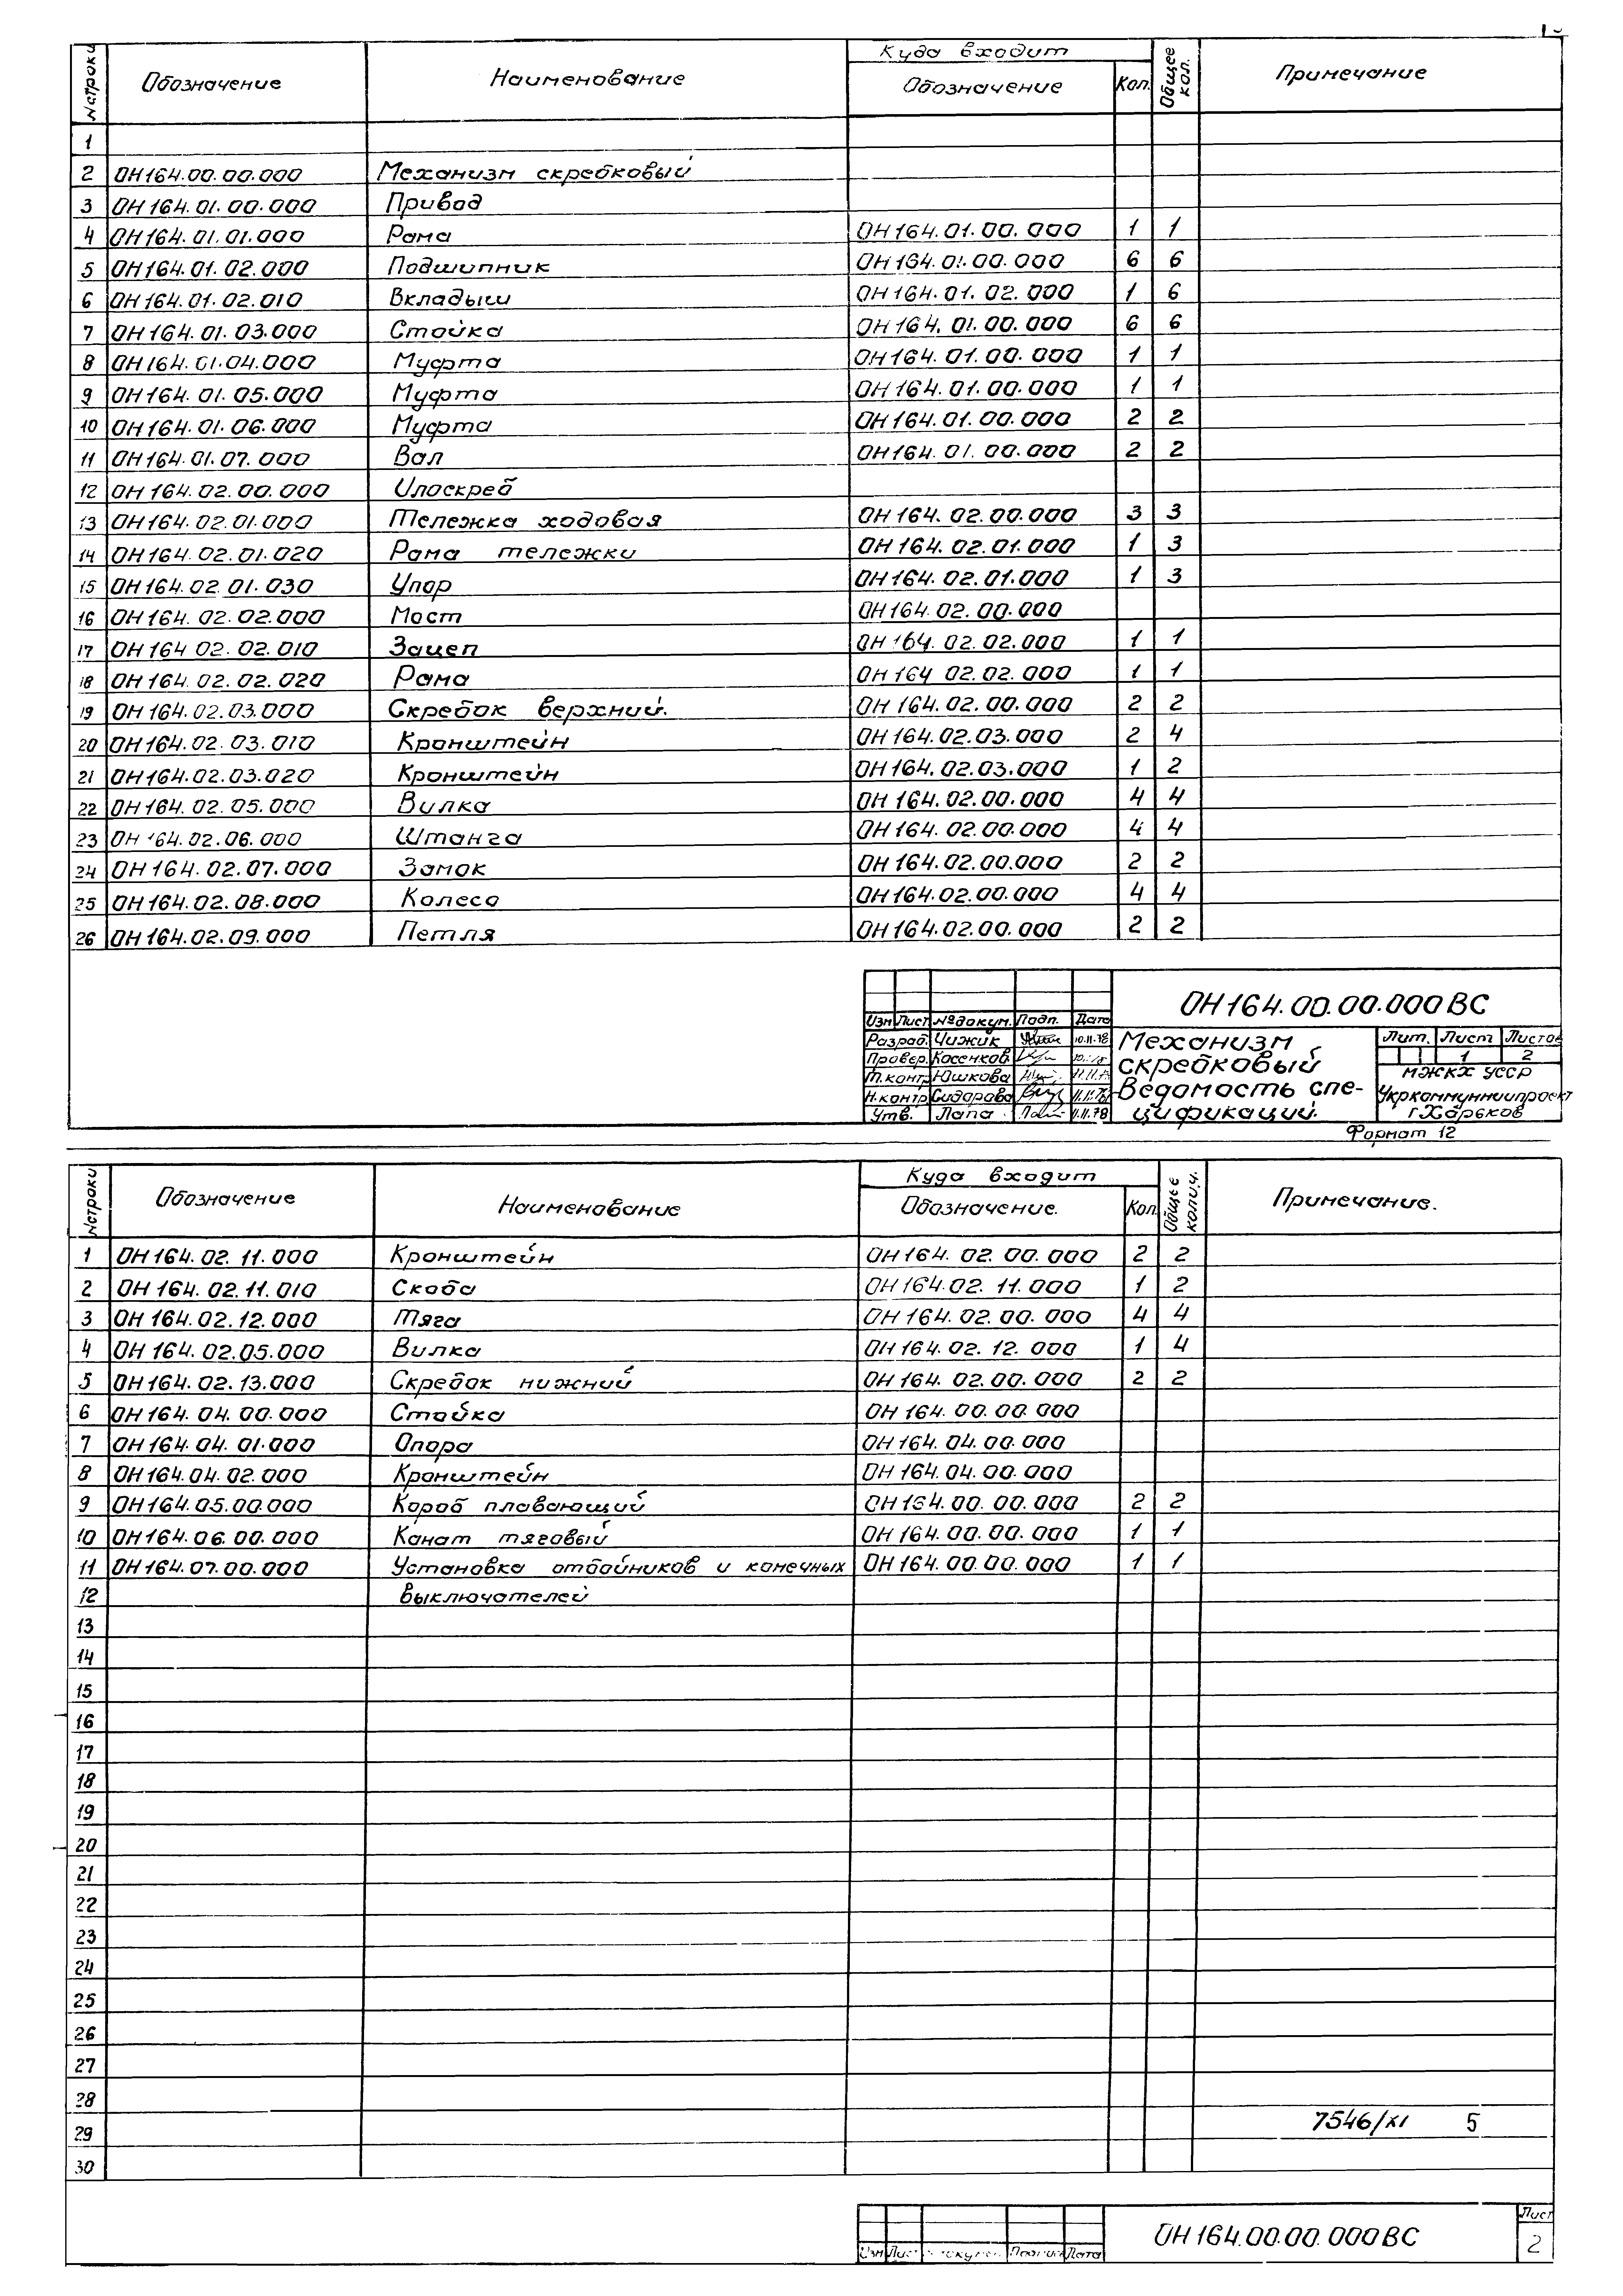 №строки Обозначение Наименование Куда входит Общее кол. Примечание
Обозначение Кол.
1
2 ОН164.00.00.000 Механизм скребковый
3 ОН164.01.00.000 Привод
4 ОН164.01.01.000 Рама ОН164.01.00.000 1 1
5 ОН164.01.02.000 Подшипник ОН164.01.00.000 6 6
6 ОН164.01.02.010 Вкладыш ОН164.01.02.000 1 6
7 ОН164.01.03.000 Стойка ОН164.01.00.000 6 6
8 ОН164.01.04.000 Муфта ОН164.01.00.000 1 1
9 ОН164.01.05.000 Муфта ОН164.01.00.000 1 1
10 ОН164.01.06.000 Муфта ОН164.01.00.000 2 2
11 ОН164.01.07.000 Вал ОН164.01.00.000 2 2
12 ОН164.02.00.000 Илоскреб
13 ОН164.02.01.000 Тележка ходовая ОН164.02.00.000 3 3
14 ОН164.02.01.020 Рама тележки ОН164.02.01.000 1 3
15 ОН164.02.01.030 Упор ОН164.02.01.000 1 3
16 ОН164.02.02.000 Мост ОН164.02.00.000
17 ОН164.02.02.010 Зацеп ОН164.02.02.000 1 1
18 ОН164.02.02.020 Рама ОН164.02.02.000 1 1
19 ОН164.02.03.000 Скребок верхний. ОН164.02.00.000 2 2
20 ОН164.02.03.010 Кронштейн ОН164.02.03.000 2 4
21 ОН164.02.03.020 Кронштейн ОН164.02.03.000 1 2
22 ОН164.02.05.000 Вилка ОН164.02.00.000 4 4
23 ОН164.02.06.000 Штанга ОН164.02.00.000 4 4
24 ОН164.02.07.000 Замок ОН164.02.00.000 2 2
25 ОН164.02.08.000 Колесо ОН164.02.00.000 4 4
26 ОН164.02.09.000 Петля ОН164.02.00.000 2 2
ОН164.00.00.000ВС
Изм Лист №докум. Подп. Дата
Разраб. Чижик 10.11.78
Провер. Косенков
Т.контр Юшкова
Н.контр. Сидорова
Утв. Папа 11.11.78
Механизм
скребковый
Ведомость спе-
цификаций.
Лит. Лист Листов
1 2
МЖКХ УССР
Укркоммунниипроект
г.Харьков
Формат 12
№строки Обозначение Наименование Куда входит Общее колич. Примечание.
Обозначение. Кол.
1 ОН164.02.11.000 Кронштейн ОН164.02.00.000 2 2
2 ОН164.02.11.010 Скоба ОН164.02.11.000 1 2
3 ОН164.02.12.000 Тяга ОН164.02.00.000 4 4
4 ОН164.02.05.000 Вилка ОН164.02.12.000 1 4
5 ОН164.02.13.000 Скребок нижний ОН164.02.00.000 2 2
6 ОН164.04.00.000 Стойка ОН164.00.00.000
7 ОН164.04.01.000 Опора ОН164.04.00.000
8 ОН164.04.02.000 Кронштейн ОН164.04.00.000
9 ОН164.05.00.000 Короб плавающий ОН164.00.00.000 2 2
10 ОН164.06.00.000 Канат тяговый ОН164.00.00.000 1 1
11 ОН164.07.00.000 Установка отбойников и конечных ОН164.00.00.000 1 1
12 выключателей
13
14
15
16
17
18
19
20
21
22
23
24
25
26
27
28
29
30
7546/XI 5
ОН164.00.00.000ВС
Лист
2
Изм Лист Дата